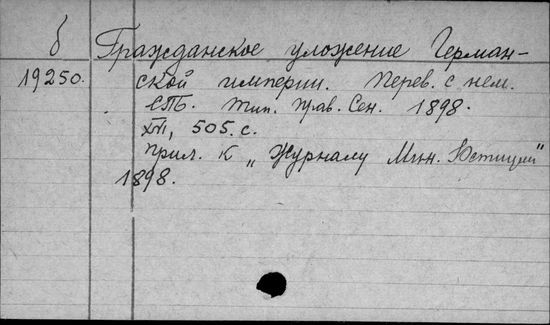 б Гражданское уложение Герман-
19250. ской империи. Перев. с нем.
СПБ. Тип. Прав. Сен. 1898.
XVI, 505. с.
Прил. к „Журналу Мин. Юстиции"
1898.